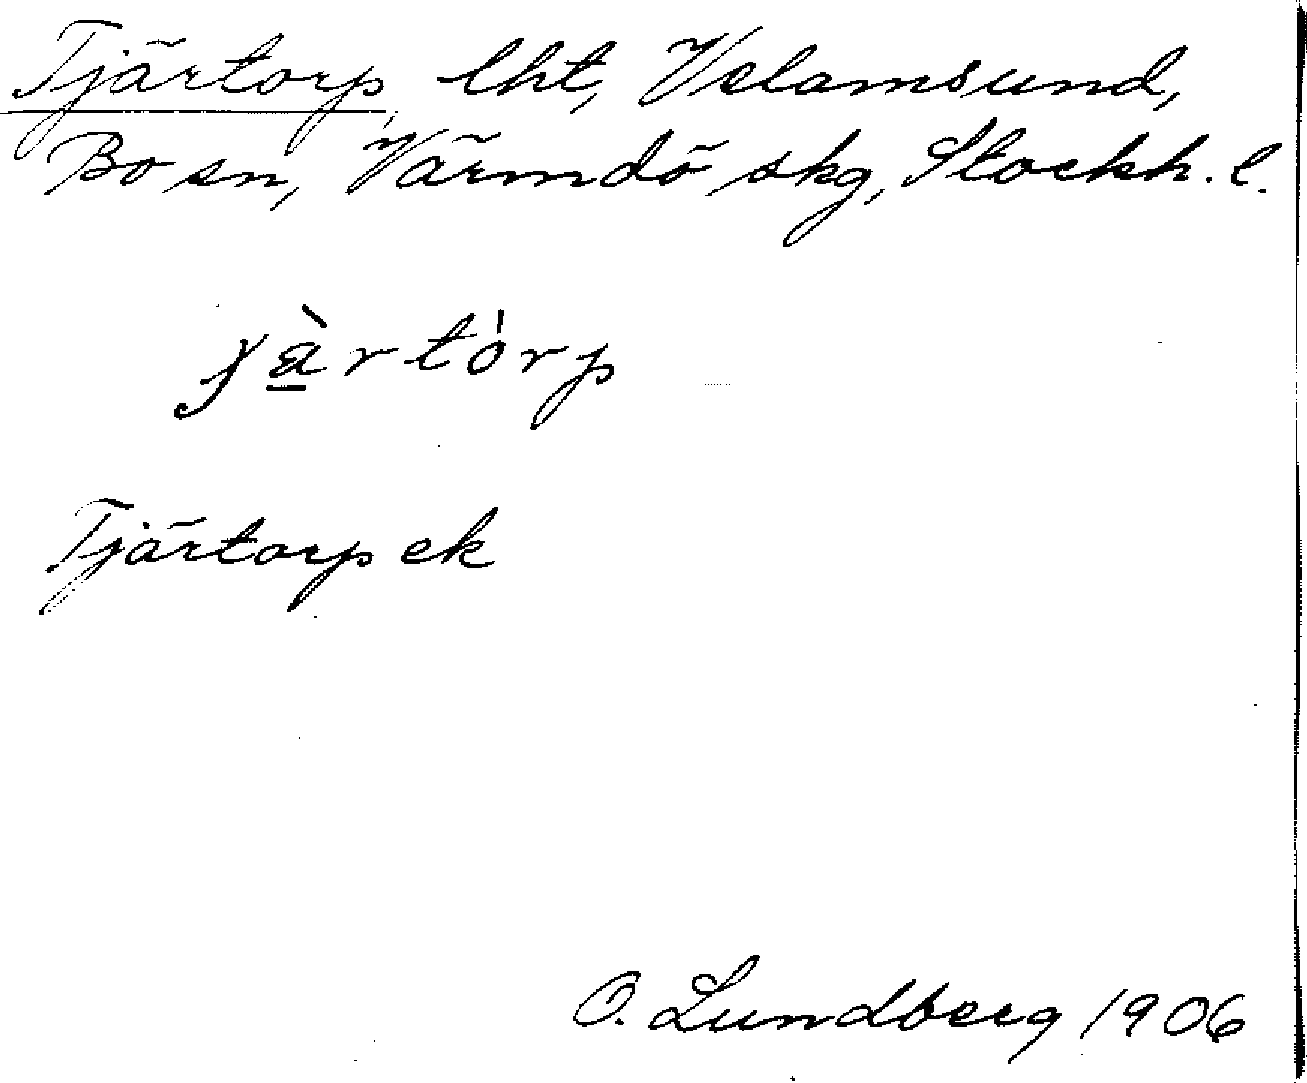 Tjärtorp, lht, Velamsund,
Bo sn, Värmdö skg, Stockh. l.
Tjärtorp ek
O. Lundberg 1906